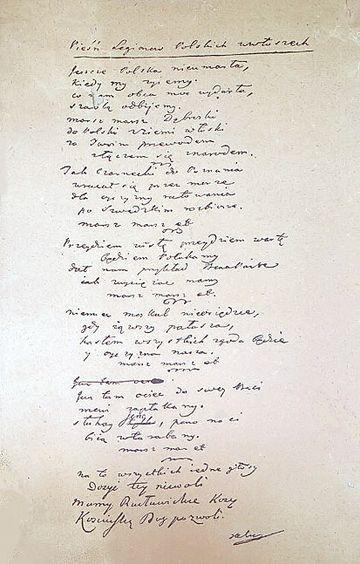 Pieśń Legionów Polskich we Włoszech
Jeszcze Polska nieumarła,
kiedy my żyiemy.
co nam obca moc wydarła,
szablą odbijemy.
marsz marsz Dąbroski
do Polski z ziemi włoski
za Twoim przewodem
złączem się z narodem.
Jak Czarnecki do Poznania
wracał się przez morze
dla oyczyzny ratowania
po Szwedzkim rozbiorze.
marsz marsz et.
Przeydziem wisłę przeydziem wartę
będziem Polakamy
dał nam przykład Bonaparte
iak zwyciężać mamy
marsz marsz et.
niemiec moskal nieosiędzie,
gdy iąwszy pałasza,
hasłem wszystkich zgoda będzie
y oyczyzna nasza.
marsz marsz et
Już tam ociec do swey Basi
mówi zapłakany.
słuchay , pono nasi
bią w tarabany.
marsz marsz et
na to wszystkich iedne głosy
Dosyć tey niewoli
Mamy Racławickie Kosy
Kosciuszkę Bóg pozwoli.